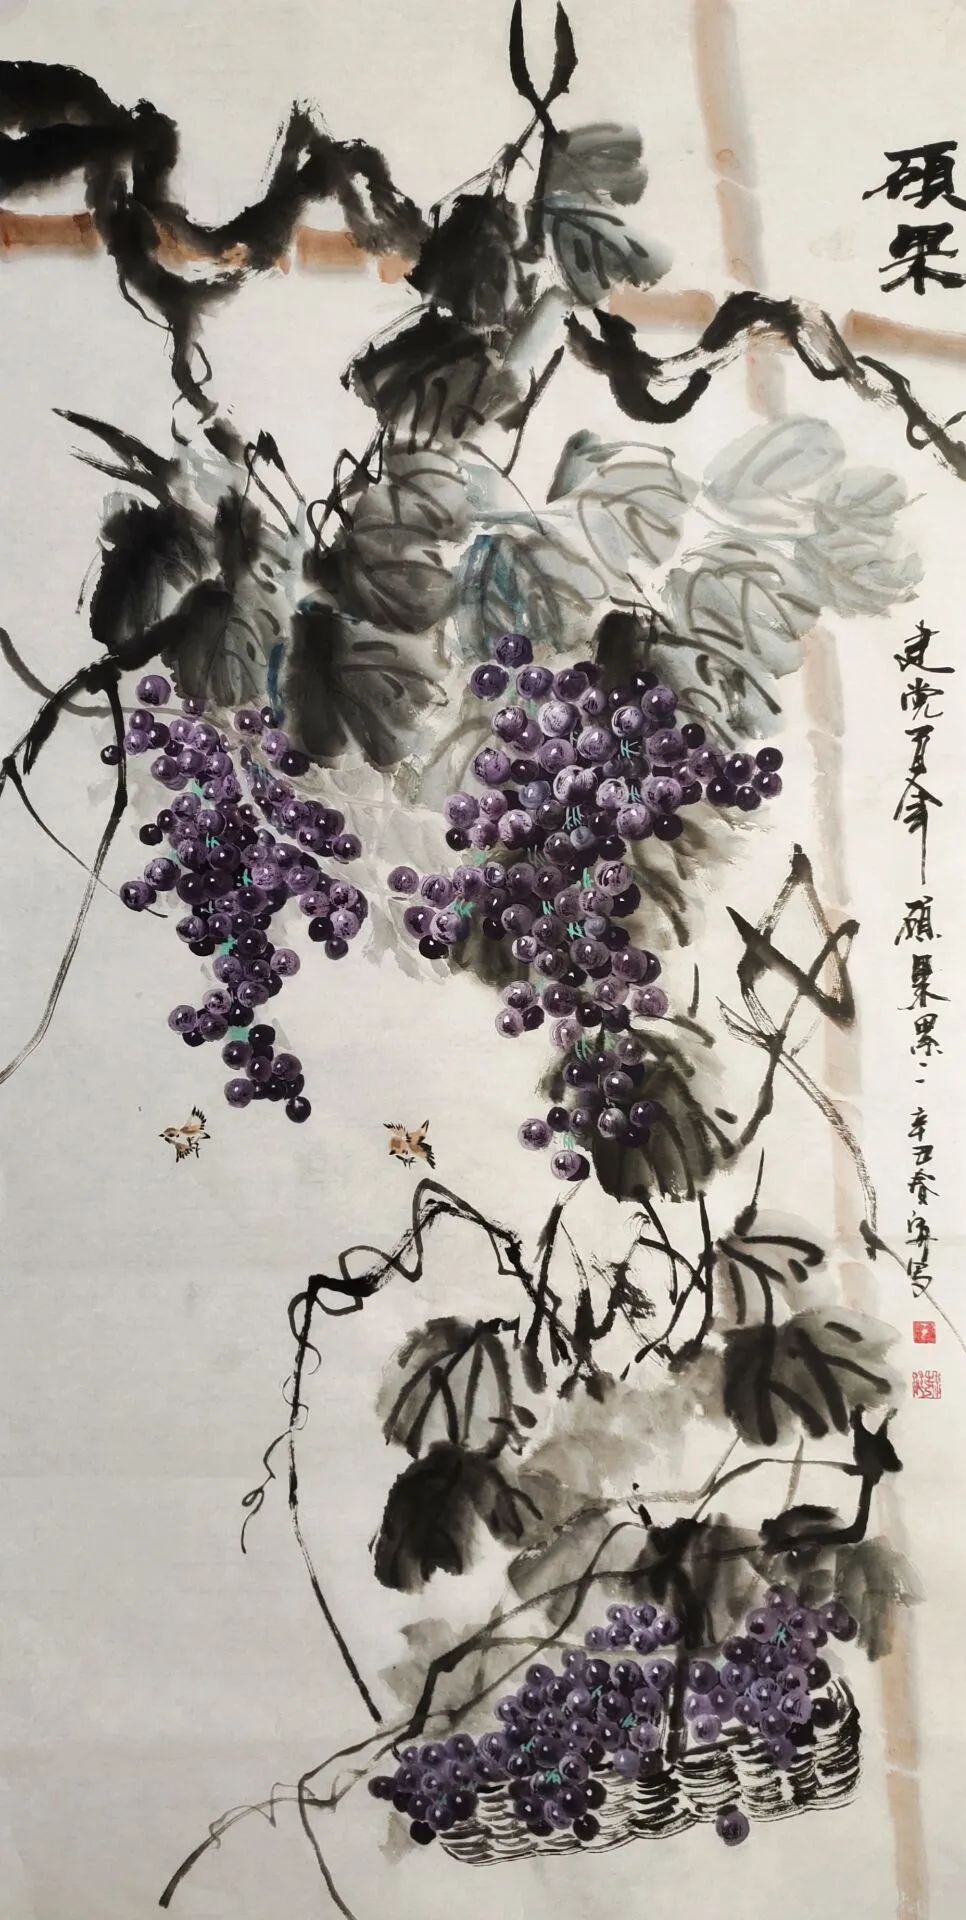 硕果
建党百年硕果累二辛丑春海写